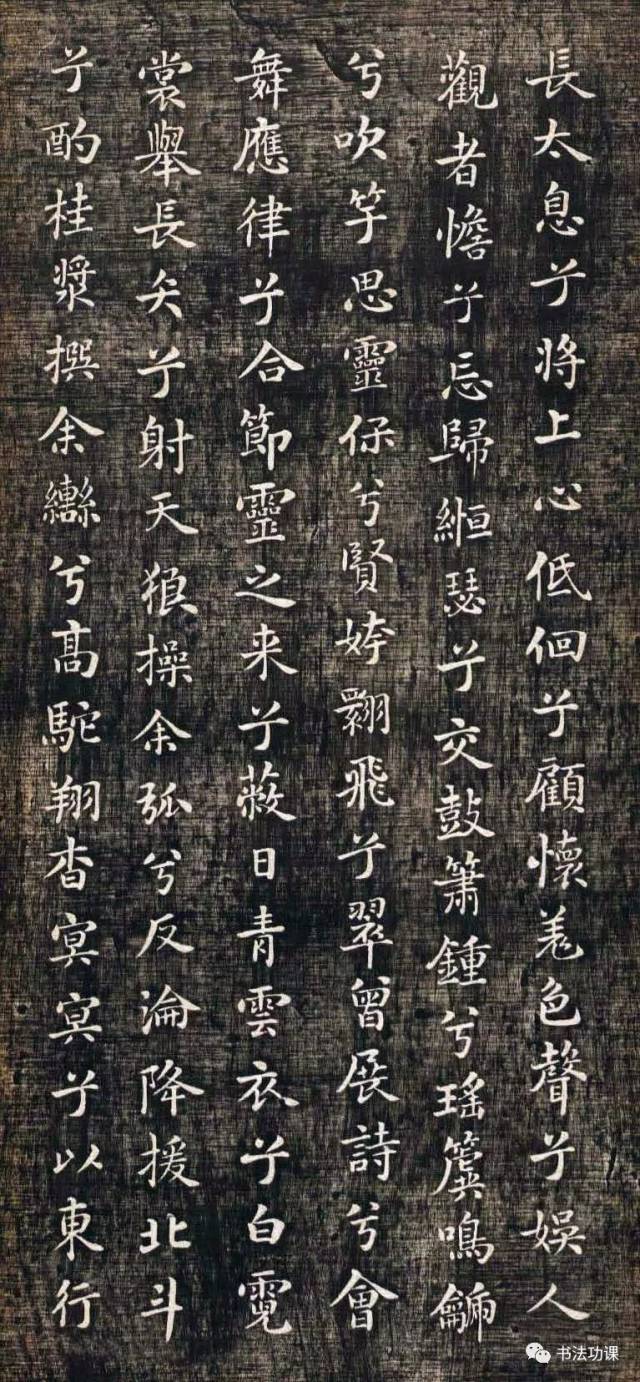 長太息兮将上心低佪兮顧懷羌色聲兮娛人
觀者憺兮忘歸縆瑟兮交鼓簫鍾兮瑤簴鳴
兮吹竽思靈保兮賢姱翾飛兮翠曾展詩兮會
舞應律兮合節靈之来兮蔽日青雲衣兮白霓
裳舉長矢兮射天狼操余弧兮反淪降援北斗
兮酌桂漿撰余轡兮高駝翔杳冥冥兮以東行
书法功课